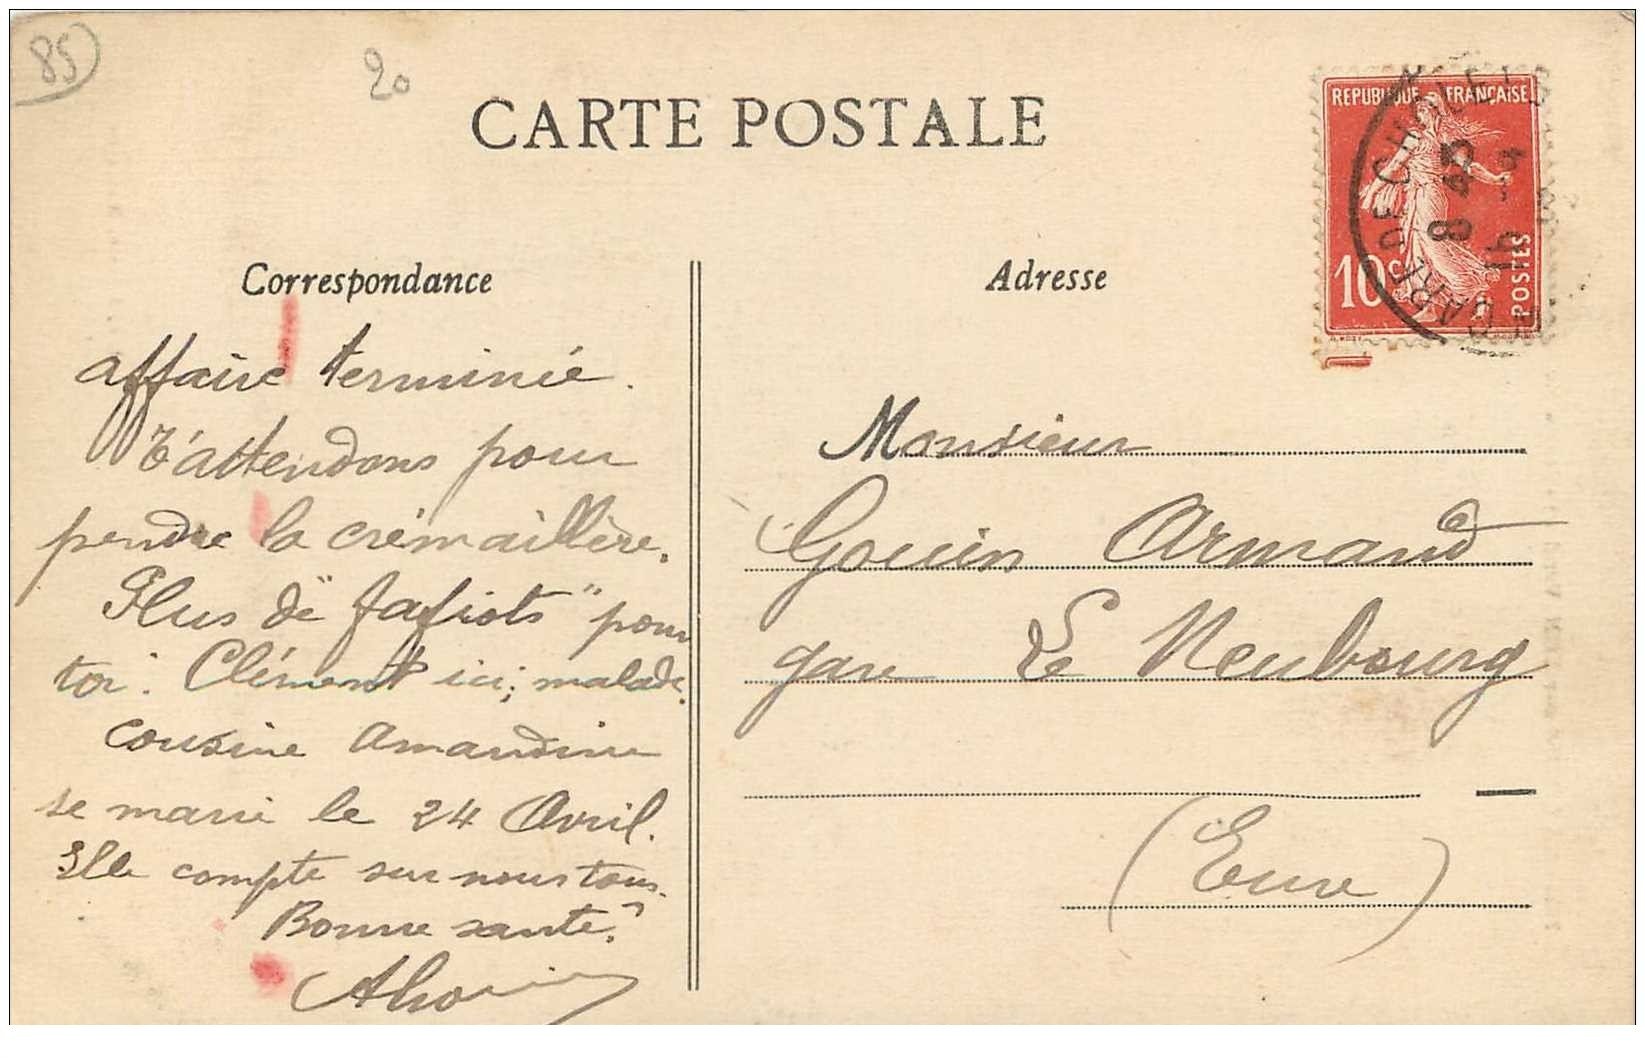 85
20
CARTE POSTALE
REPUBLIQUE FRANÇAISE
10c
POSTES
GARE DE CH
8 43
15 - 4
Correspondance
Adresse
affaire terminée.
T'attendons pour
pendre la crémaillère.
Plus de "fafiots" pour
toi. Clément ici; malade.
cousine Amandine
se marie le 24 Avril.
Elle compte sur nous tous.
Bonne santé?
Monsieur
Gouin Armand
gare Le Neubourg
(Eure)